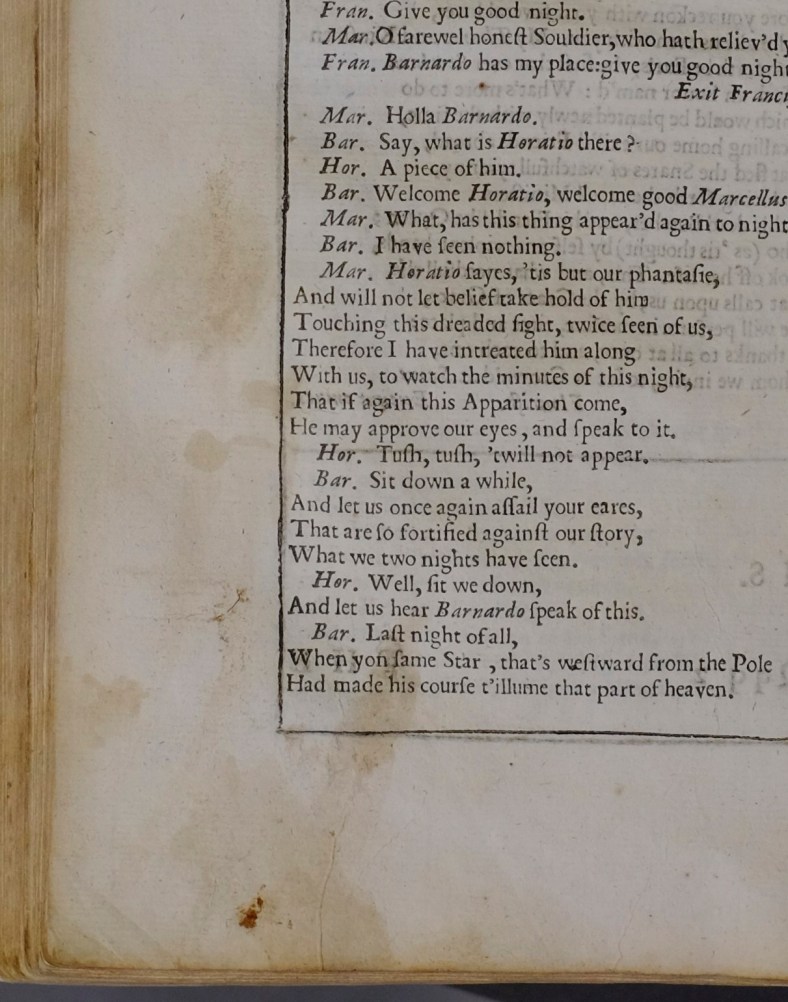 Fran. Give you good night.
Mar. O farewel honeſt Souldier, who hath reliev'd
Fran. Barnardo has my place: give you good
Exit
Mar. Holla Barnardo.
Bar. Say, what is Horatio there?
Hor. A piece of him.
Bar. Welcome Horatio, welcome good Marcellus
Mar. What, has this thing appear'd again to night
Bar. I have ſeen nothing.
Mar. Horatio ſayes, 'tis but our phantaſie,
And will not let belief take hold of him
Touching this dreaded ſight, twice ſeen of us,
Therefore I have intreated him along
With us, to watch the minutes of this night,
That if again this Apparition come,
He may approve our eyes, and ſpeak to it.
Hor. Tuſh, tuſh, 'twill not appear.
Bar. Sit down a while,
And let us once again aſſail your eares,
That are ſo fortified againſt our ſtory,
What we two nights have ſeen.
Hor. Well, ſit we down,
And let us hear Barnardo ſpeak of this.
Bar. Laſt night of all,
When yon ſame Star, that's weſtward from the Pole
Had made his courſe t'illume that part of heaven.